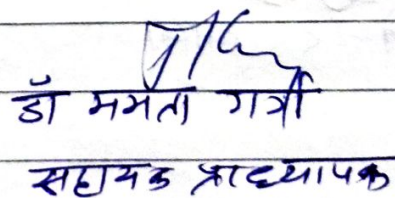 डॉ ममता गर्ती
सहायक प्राध्यापक